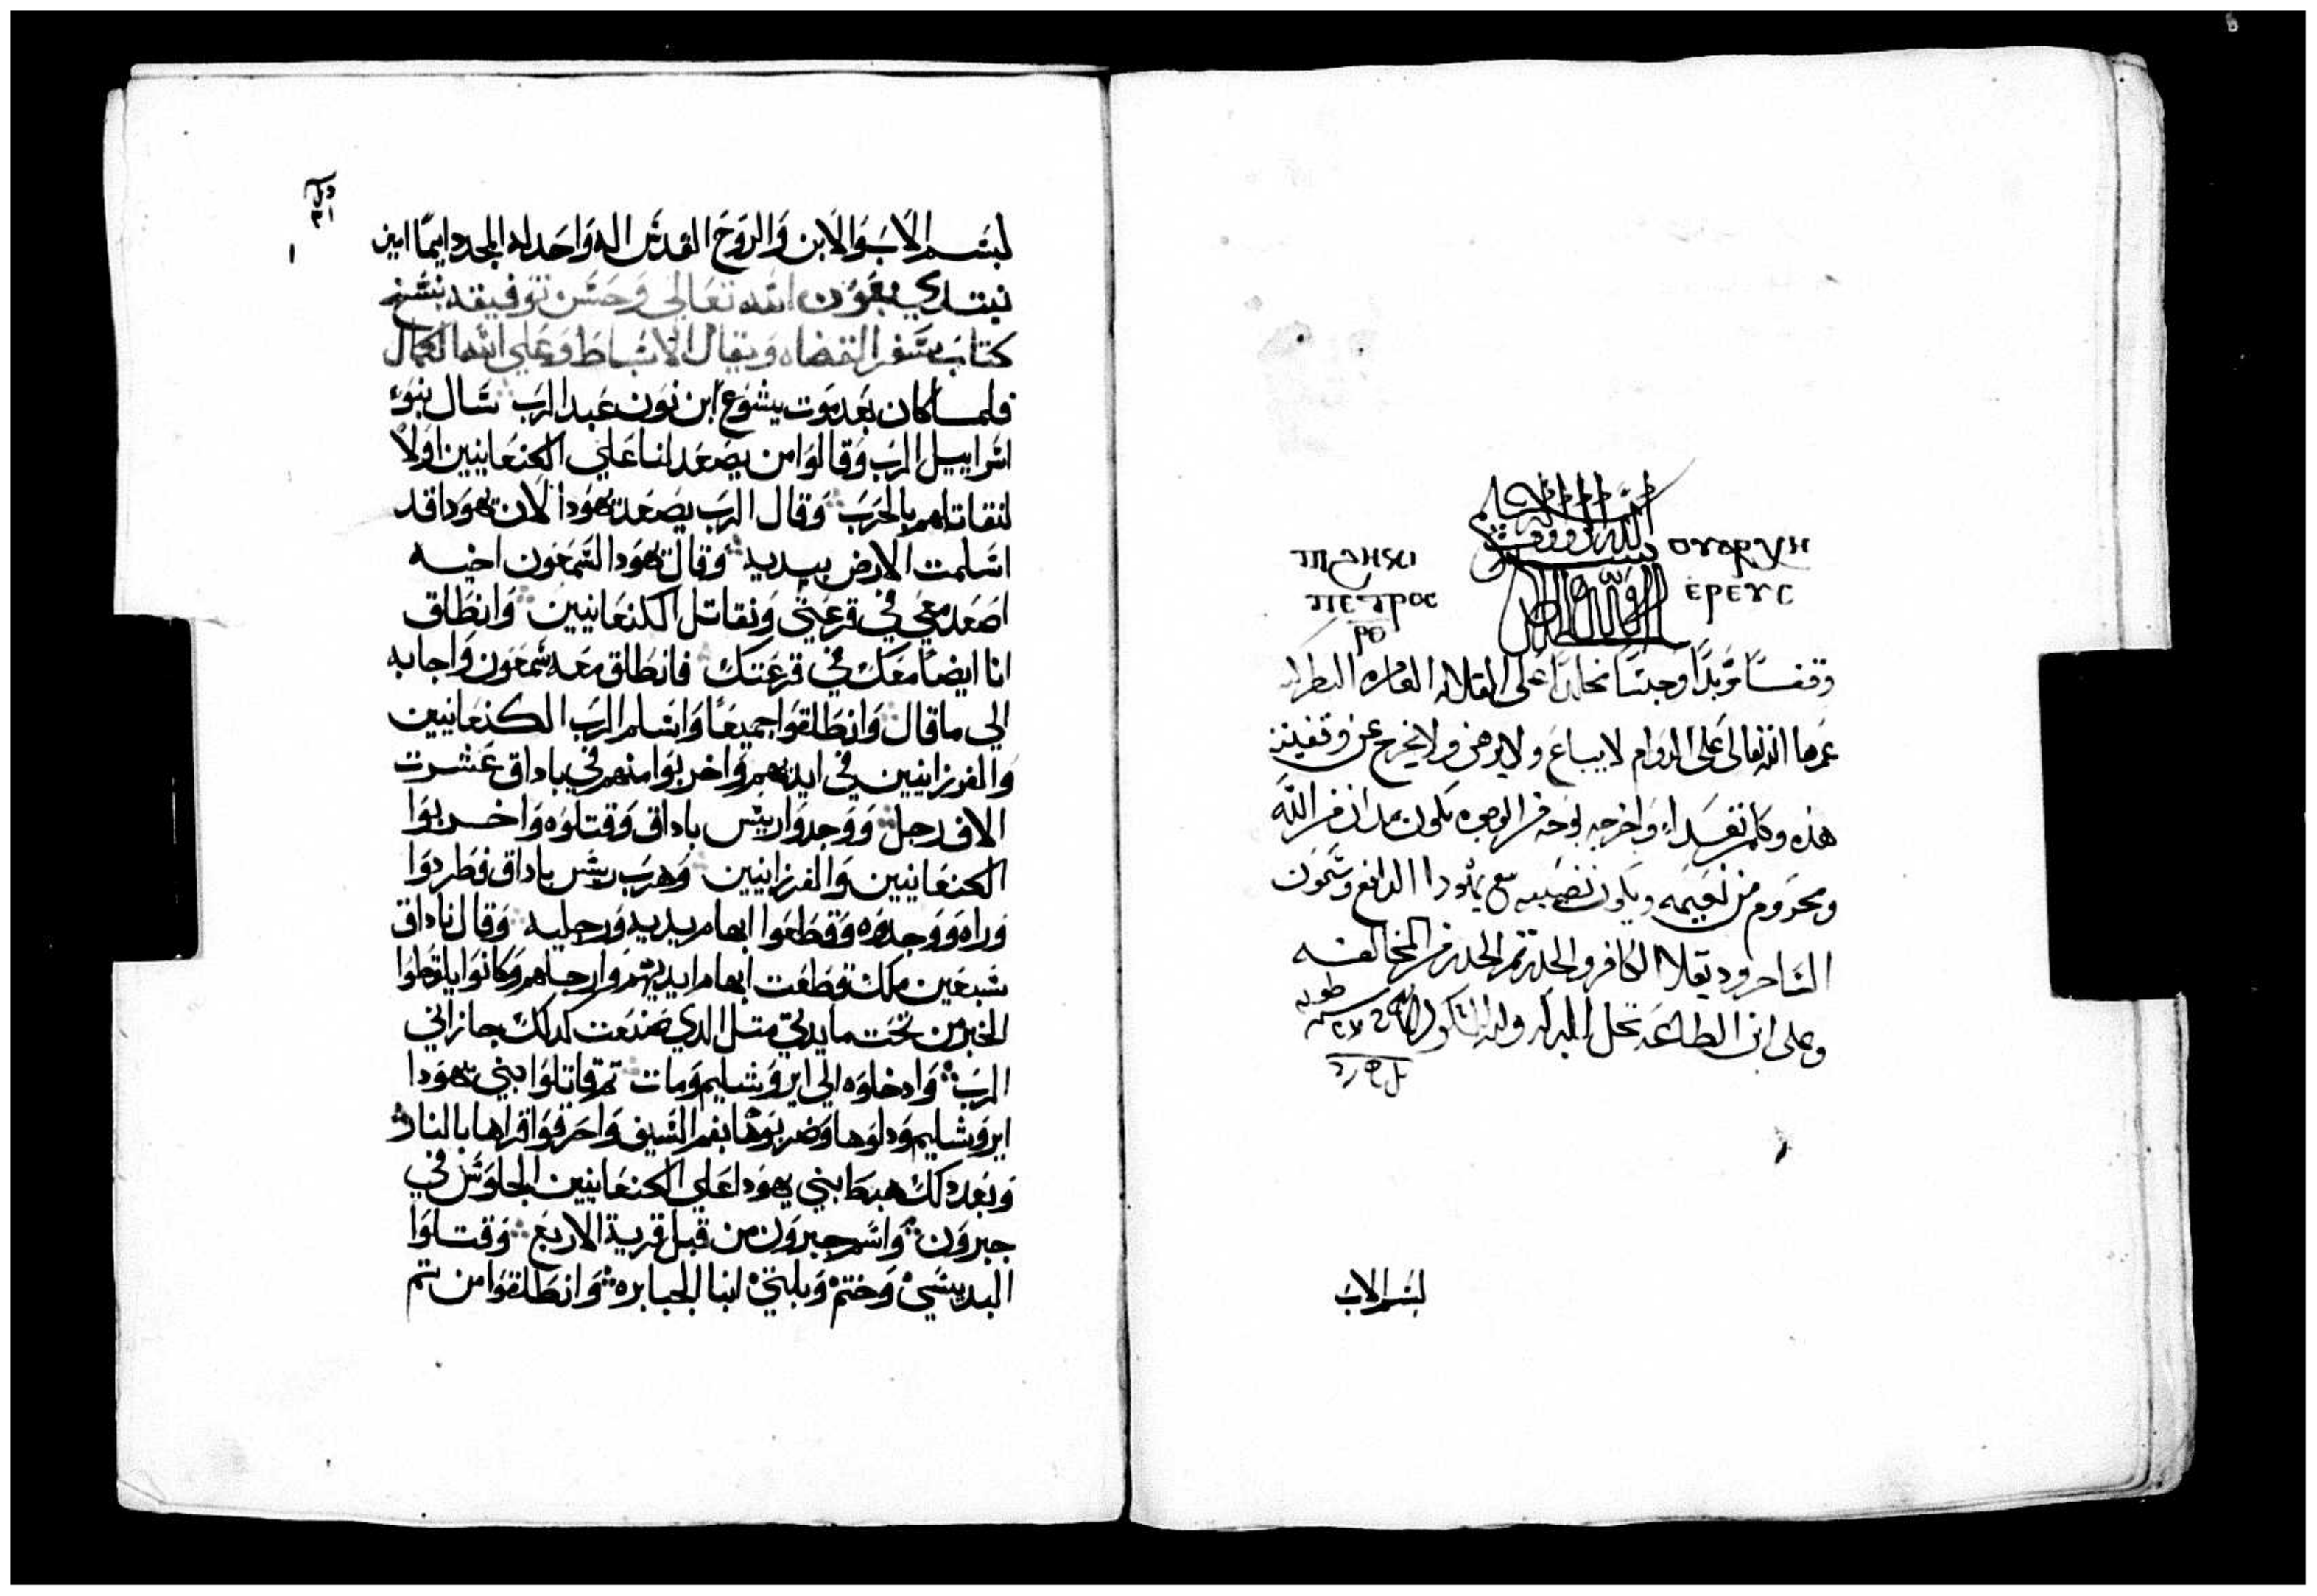 ⲟⲩⲁⲣⲭⲏ
ⲉⲣⲉⲩⲥ
ⲡⲉⲧⲣⲟⲥ
ⲣⲑ
وقفاً مؤبداً وحبساً مخلداً على القلايه العامره البطر
عمرها الله تعالى على الدوام لا يباع ولا يرهن ولا يخرج عن وقفيته
هذه وكلمن تعدا واخرجه بوجه من الوجوه يكون مدان من الله
ومحروم من نعيمه ويكون نصيبه مع يهودا الدافع وسمون
الساحر وديقلا الكافر والحذر ثم الحذر من المخالفه
وعلى ابن الطاعه تحل البركه ولله الشكر
طوبه
بسم الاب
بسم الاب والابن والروح القدس اله واحد له المجد دايماً امين
نبتدي بعون الله تعالى وحسن توفيقه بنسخ
كتاب سفر القضاه ويقال الاسباط وعلى الله الكمال
فلما كان بعد موت يشوع ابن نون عبد الرب سال بنوء
اسراييل الرب وقالوا من يصعد لنا على الكنعانيين اولاً
لنقاتلهم بالحرب وقال الرب يصعد يهودا لان يهودا قد
اسلمت الارض بيديه وقال يهودا لسمعون اخيه
اصعد معي في قرعتي ونقاتل الكنعانيين وانطلق
انا ايضاً معك في قرعتك فانطلق معه شمعون واجابه
الي ما قال وانطلقوا جميعاً واسلم الرب الكنعانيين
والفرزانيين في ايديهم واخربوا منهم في باداق عشرت
الاف رجل ووجدوا رييس باداق وقتلوه واخربوا
الكنعانيين والفرزانيين وهرب ريس باداق فطردوا
وراه ووجدوه وقطعوا ابهام يديه ورجليه وقال باداق
سبعين ملك قطعت ابهام ايديهم وارجلهم وكانوا يلقطوا
الخبز من تحت مايدتي متل الدي صنعت كدلك جازاني
الرب وادخلوه الي ايروشليم ومات تم قاتلوا بني يهودا
ايروشليم ودلوها وضربوها بفم السيف واحرقوا قراها بالنار
وبعد دلك هبط بني يهودا على الكنعانيين الجلوس في
جبرون واسم جبرون من قبل قرية الاربع وقتلوا
البديسي وختم وبلتي ابنا الجبابره وانطلقوا من تم